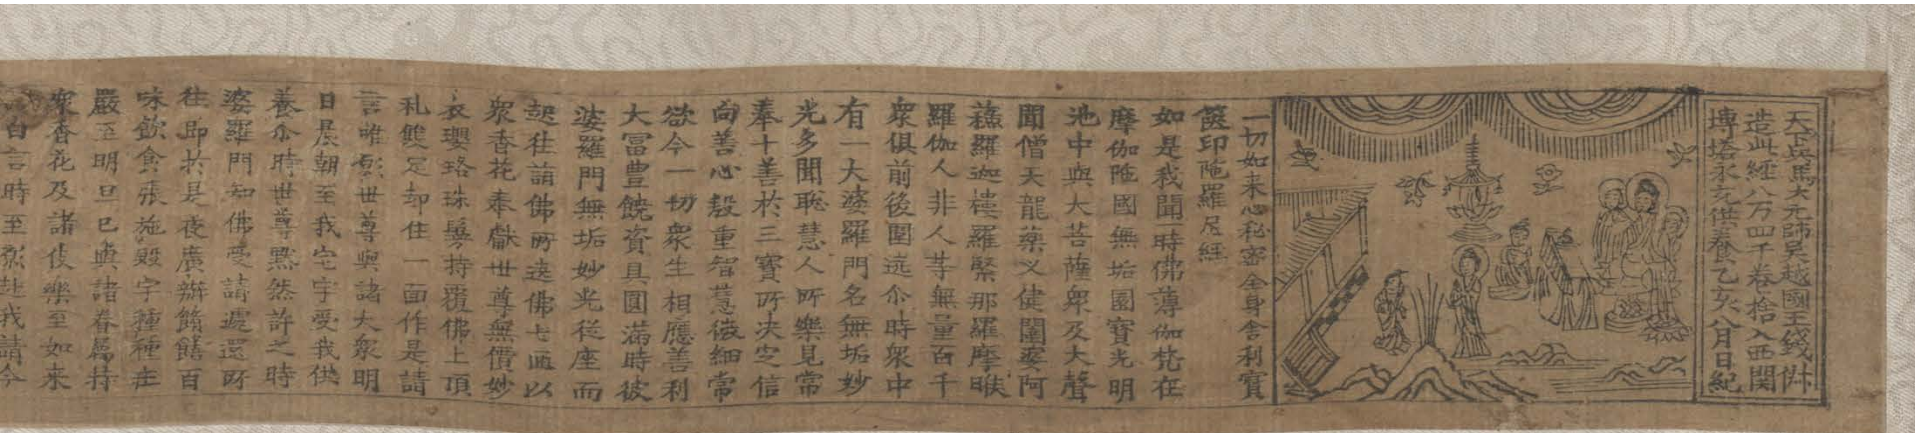 天下兵馬大元帥吳越國王錢俶
造此經八万四千卷捨入西関
塼塔永充供養乙亥八月日紀
一切如来心秘密全身舎利寳
篋印陁羅尼経
如是我聞一時佛薄伽梵在
摩伽陁國無垢園寳光明
池中與大菩薩衆及大聲
聞僧天龍藥叉健闥婆阿
蘓羅迦樓羅緊那羅摩睺
羅伽人非人等無量百千
衆俱前後圍遶尒時衆中
有一大婆羅門名無垢妙
光多聞聡慧人所樂見常
奉十善於三寳所決定信
向善心殷重智慧微細常
欲令一切衆生相應善利
大冨豊饒資具圓滿時彼
婆羅門無垢妙光従座而
起往詣佛所遶佛七匝以
衆香花奉獻世尊無價妙
衣瓔珞珠鬘持覆佛上頂
礼雙足却住一面作是請
言唯願世尊與諸大衆明
日晨朝至我宅宇受我供
養尒時世尊黙然許之時
婆羅門知佛受請遽還所
住即於是夜廣辦餚饍百
味飲食張施殿宇種種庄
嚴至明旦已與諸眷屬持
衆香花及諸伎樂至如来
白言時至願赴我請今